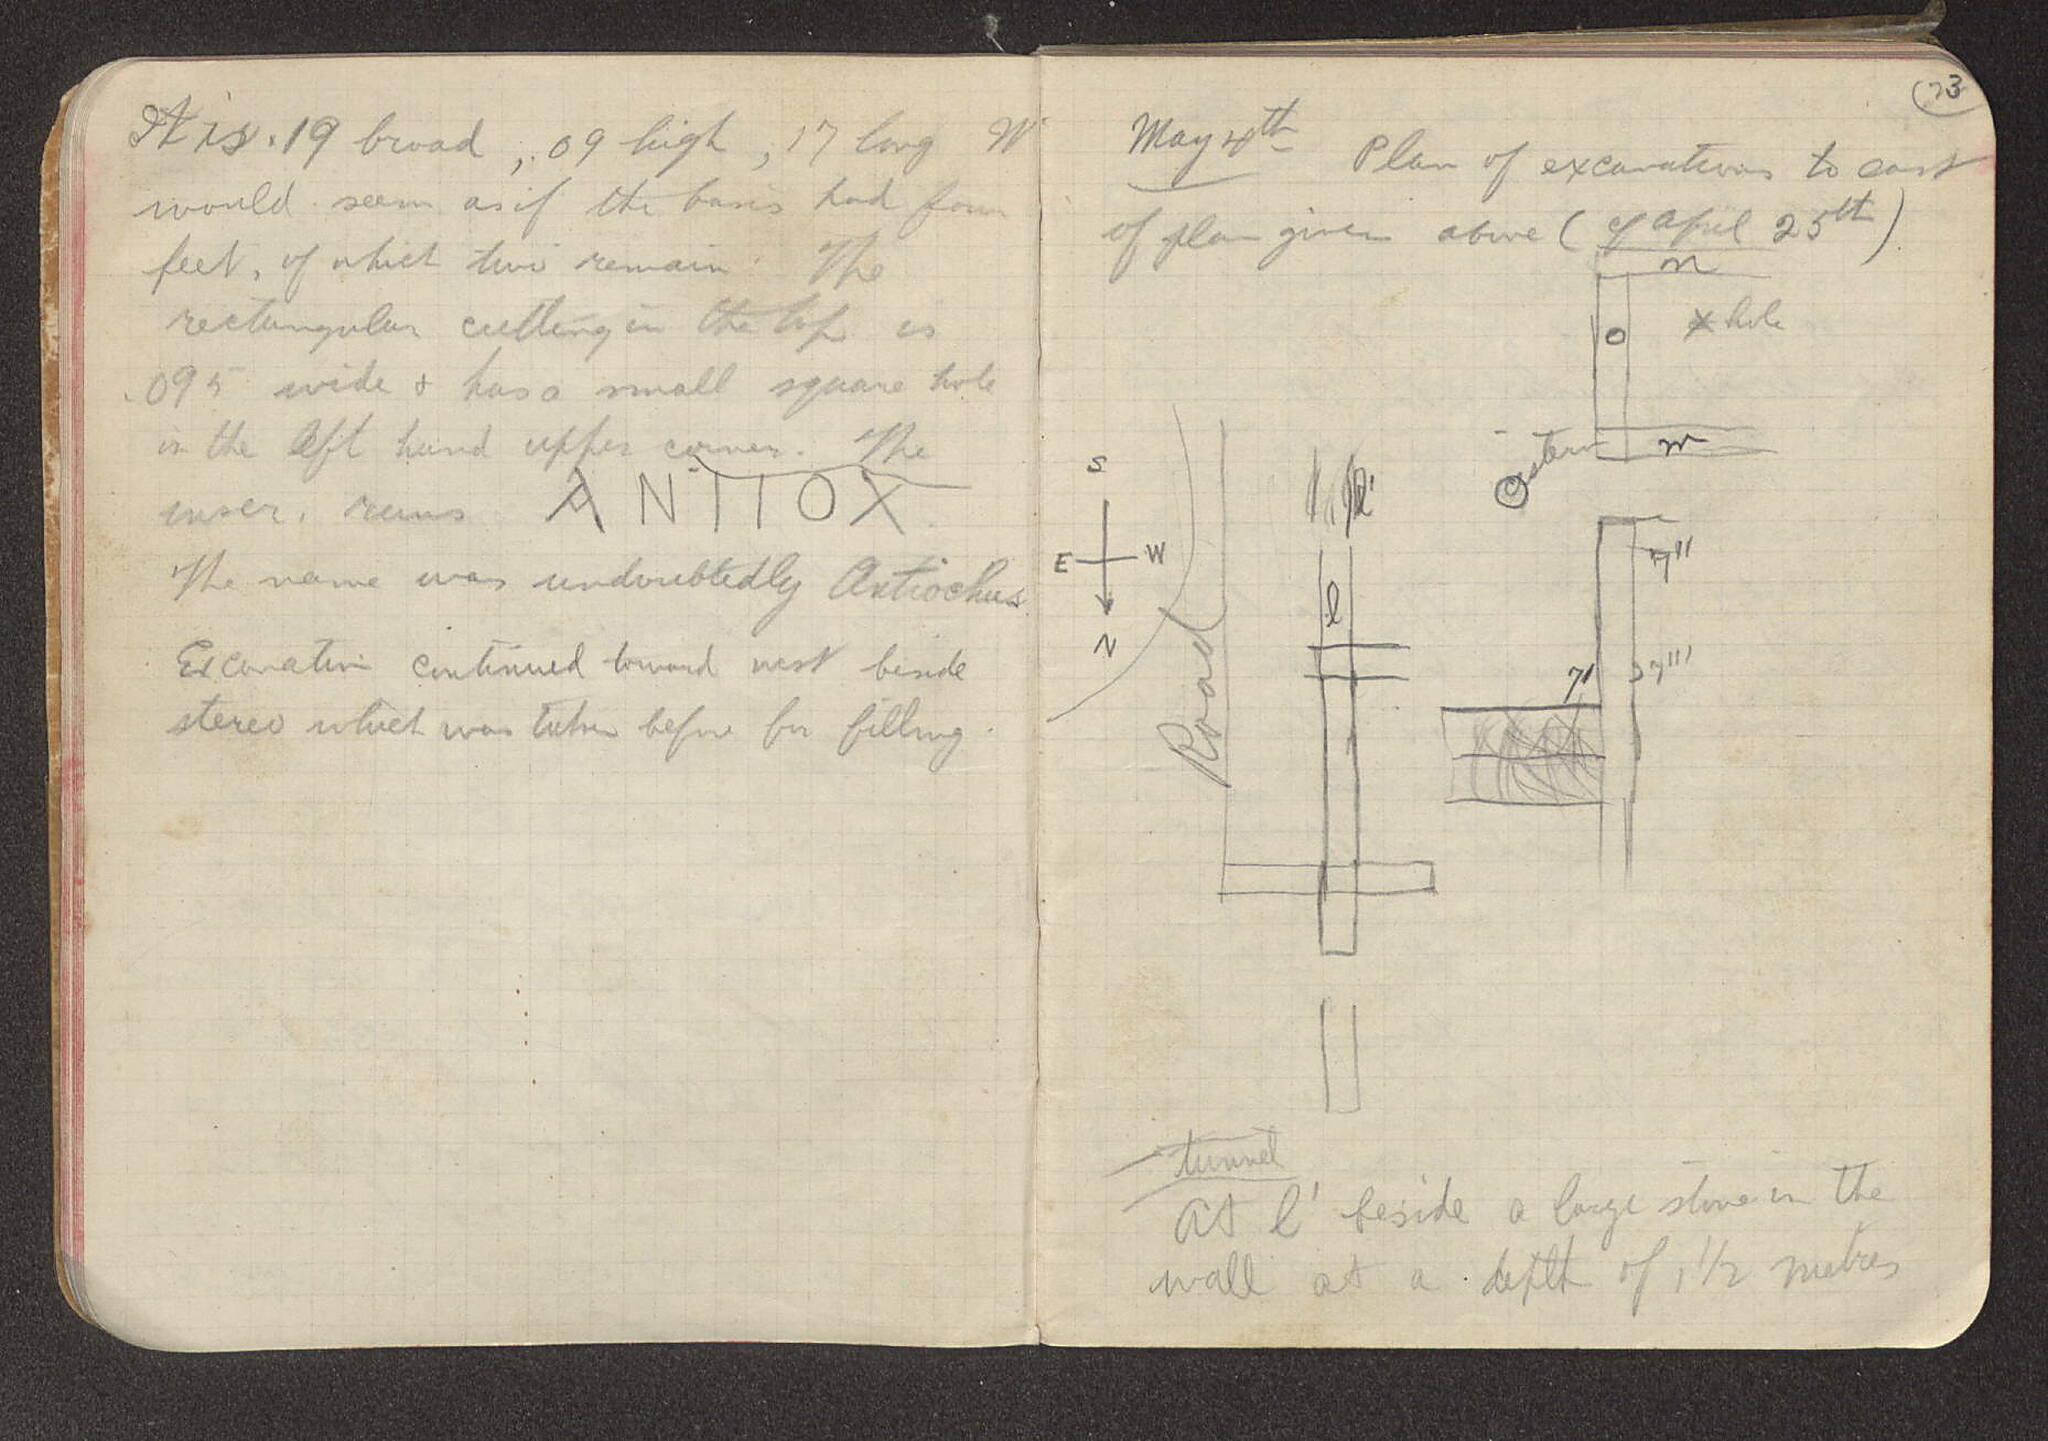 It is .19 broad, .09 high, .17 long It
would seem as if the basis had four
feet, of which two remain. The
rectangular cutting in the top is
.095 wide & has a small square hole
in the left hand upper corner. The
inscr. runs ΑΝΤΙΟΧ
The name was undoubtedly Antiochus
Excavation continued toward west beside
stereo which was taken before for filling.
73
May 4th Plan of excavations to east
of plan given above (of April 25th)
n
o
x hole
m
Cistern
S
E W
N
Road
l'
l
7'
7''
7'''
tunnel
At l' beside a large stone in the
wall at a depth of 1 1/2 metres